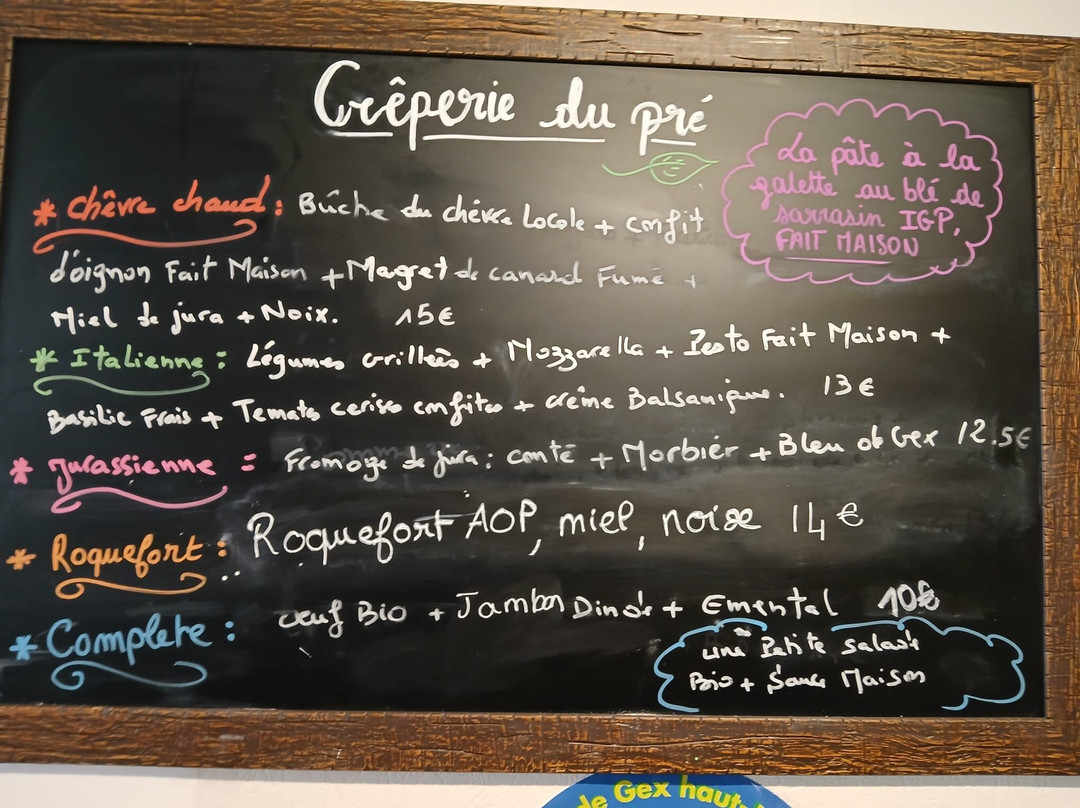 Crêperie du pré
La pâte à la
galette au blé de
sarrasin IGP,
FAIT MAISON
* chêvre chaud : Bûche du chêvre Locale + confit
d'oignon Fait Maison + Magret de canard Fumé +
Miel de jura + Noix. 15€
* Italienne : Légumes Grillés + Mozzarella + Pesto Fait Maison +
Basilic Frais + Tomates cerises confites + crême Balsamique. 13€
* Jurassienne : Fromage de jura : comté + Morbier + Bleu de Gex 12.5€
* Roquefort : Roquefort AOP, miel, noise 14€
* Complète : oeuf Bio + Jambon Dinde + Emental 10€
une Petite salade
Bio + Sauce Maison
de Gex haut